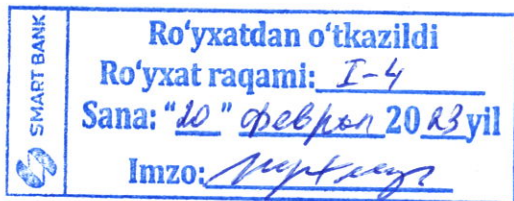 SMART BANK
Ro'yxatdan o'tkazildi
Ro'yxat raqami: I-4
Sana: "20" феврал 2023 yil
Imzo: